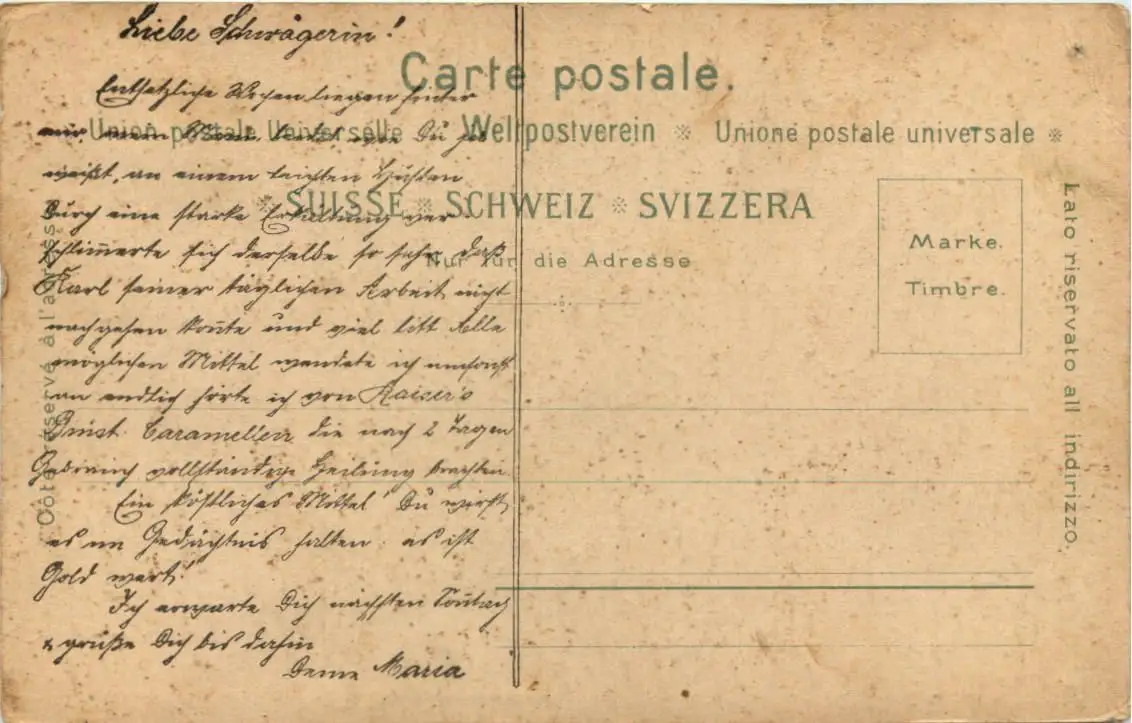 Liebe Schwägerin!
Entsetzliche Wochen liegen hinter
mir, mein Mann leidet, wie Du ja
weißt, an einem leichten Husten
Durch eine starke Erkältung ver-
schlim̅erte sich derselbe so sehr, daß
Karl seiner täglichen Arbeit nicht
nachgehen kon̅te und viel litt Alle
möglichen Mittel wendete ich umsonst
an endlich hörte ich von Kaiser's
Brust Caramellen die nach 2 Tagen
Gebrauch vollständige Heilung brachten.
Ein köstliches Mittel! Du wirst
es im Gedächtnis halten es ist
Gold wert!
Ich erwarte Dich nächsten Son̅tag
& grüße Dich bis dahin
Deine Maria
Carte postale.
Union postale Universelle ※ Weltpostverein ※ Unione postale universale ※
※ SUISSE ※ SCHWEIZ ※ SVIZZERA
Nur für die Adresse
Marke.
Timbre.
Côté réservé à l'adresse
Lato riservato all indirizzo.